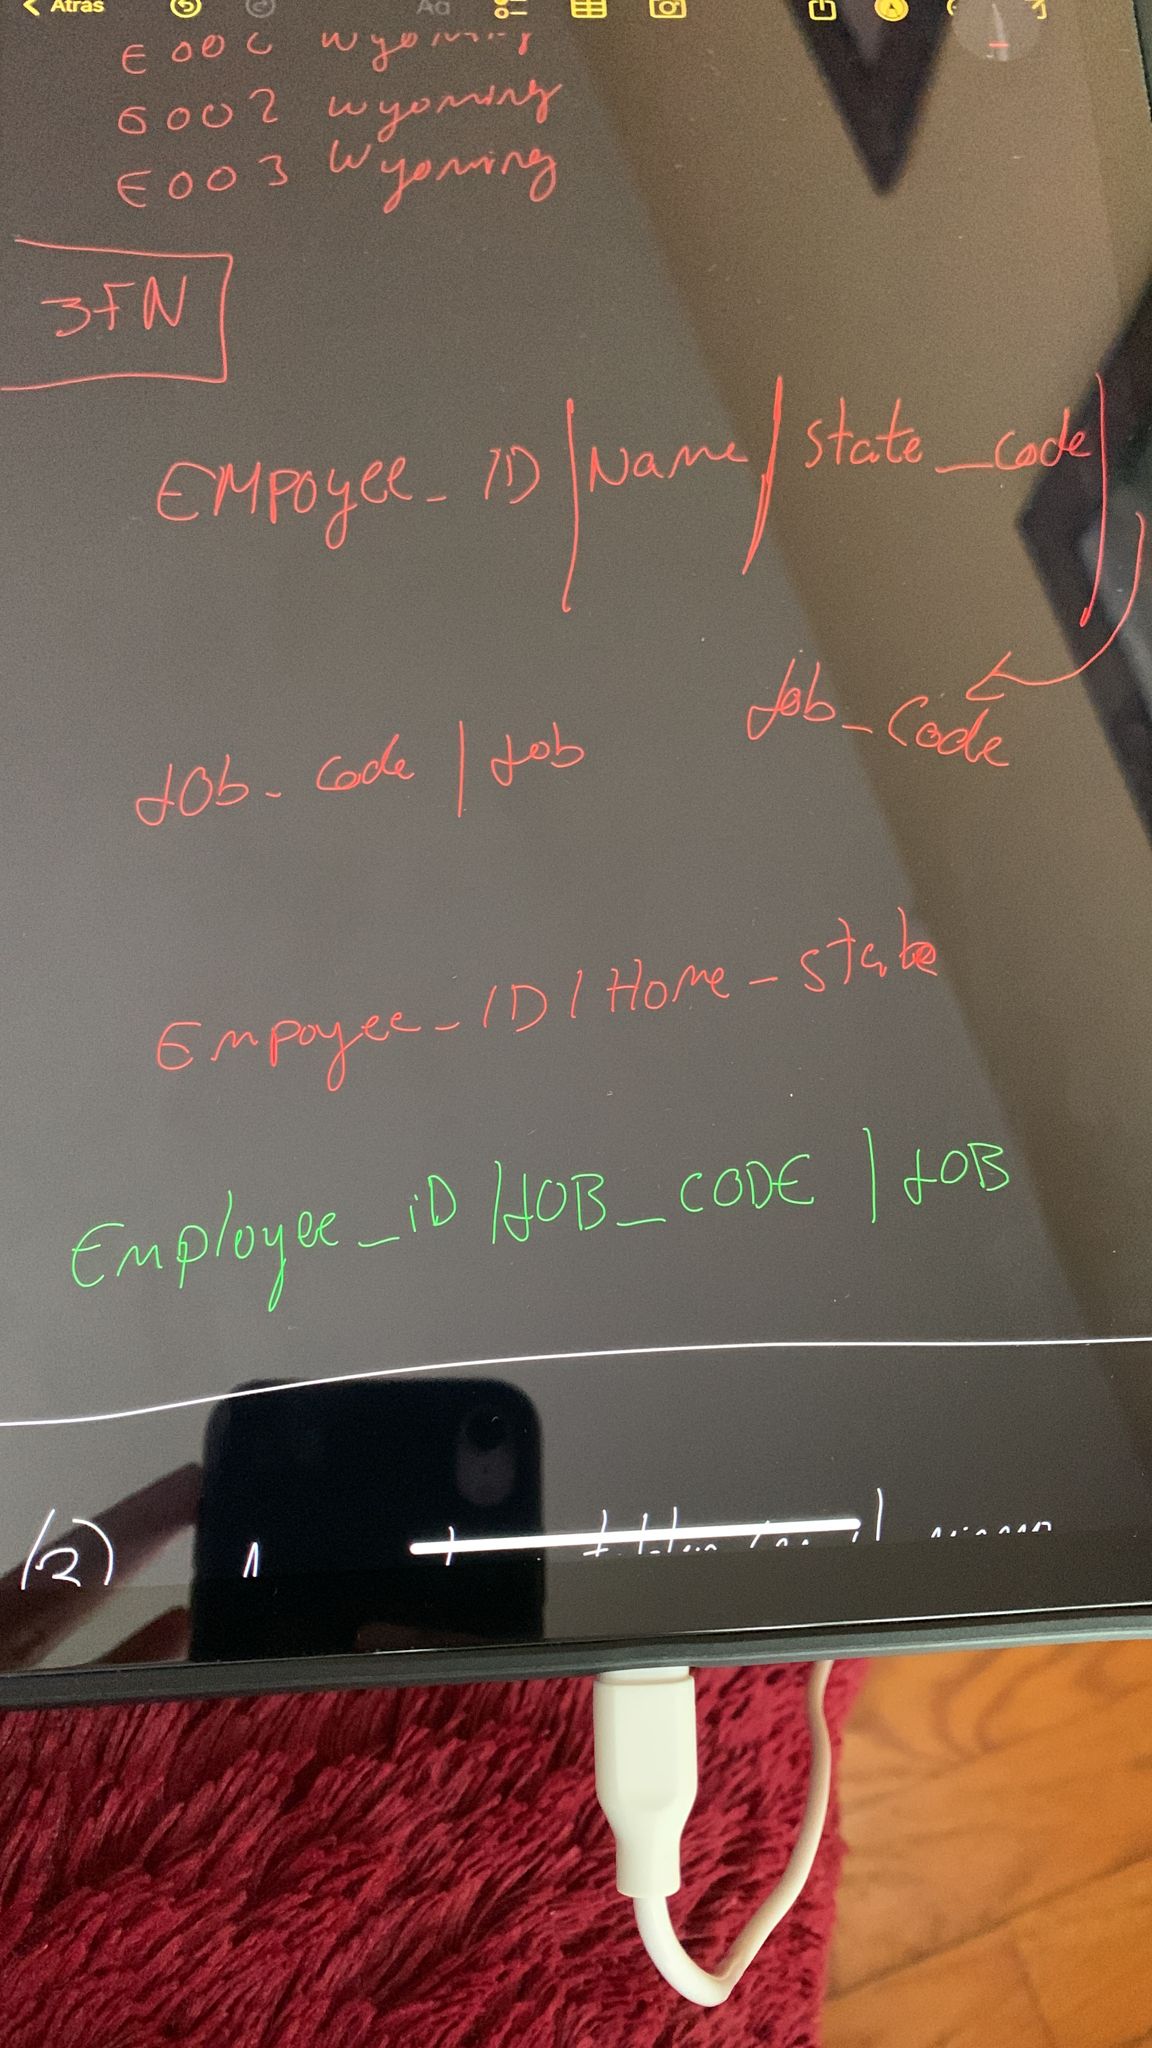 Atrás
Aa
Wyoming
6002 Wyoming
E003 Wyoming
3FN
EMPoyee_ID | Name | State_code |
Job_Code
JOb_Code | Job
Empoyee_ID | Home_state
Employee_iD | JOB_CODE | JOB
(2)